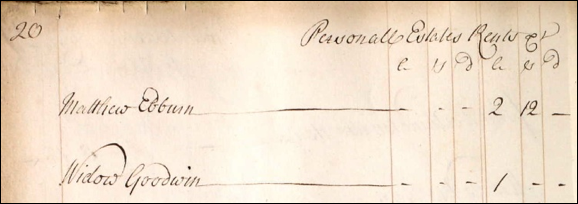 20
Personall Estates Rents &c
£ s d £ s d
Matthew Edburn - - - 2 12 -
Widow Goodwin - - - 1 - -